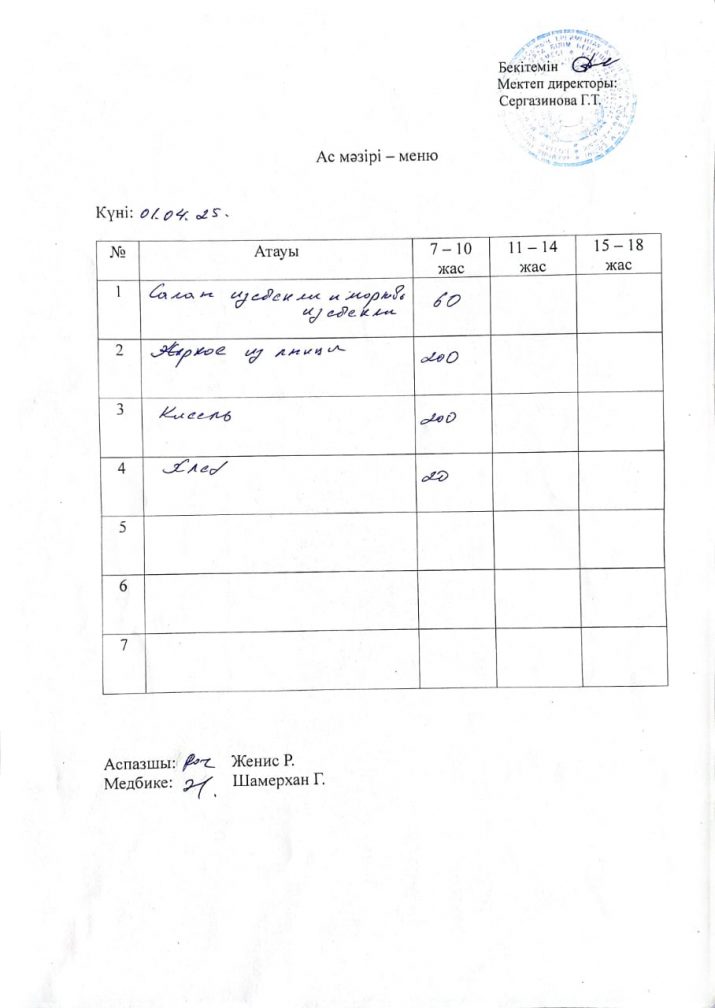 Бекітемін
Мектеп директоры:
Сергазинова Г.Т.
Ас мәзірі – меню
Күні: 01.04.25.
№ Атауы 7 – 10 жас 11 – 14 жас 15 – 18 жас
1 Салат из свеклы и морковь 60
из свеклы
2 Жаркое из птицы 200
3 Кисель 200
4 Хлеб 20
5
6
7
Аспазшы: Женис Р.
Медбике: Шамерхан Г.